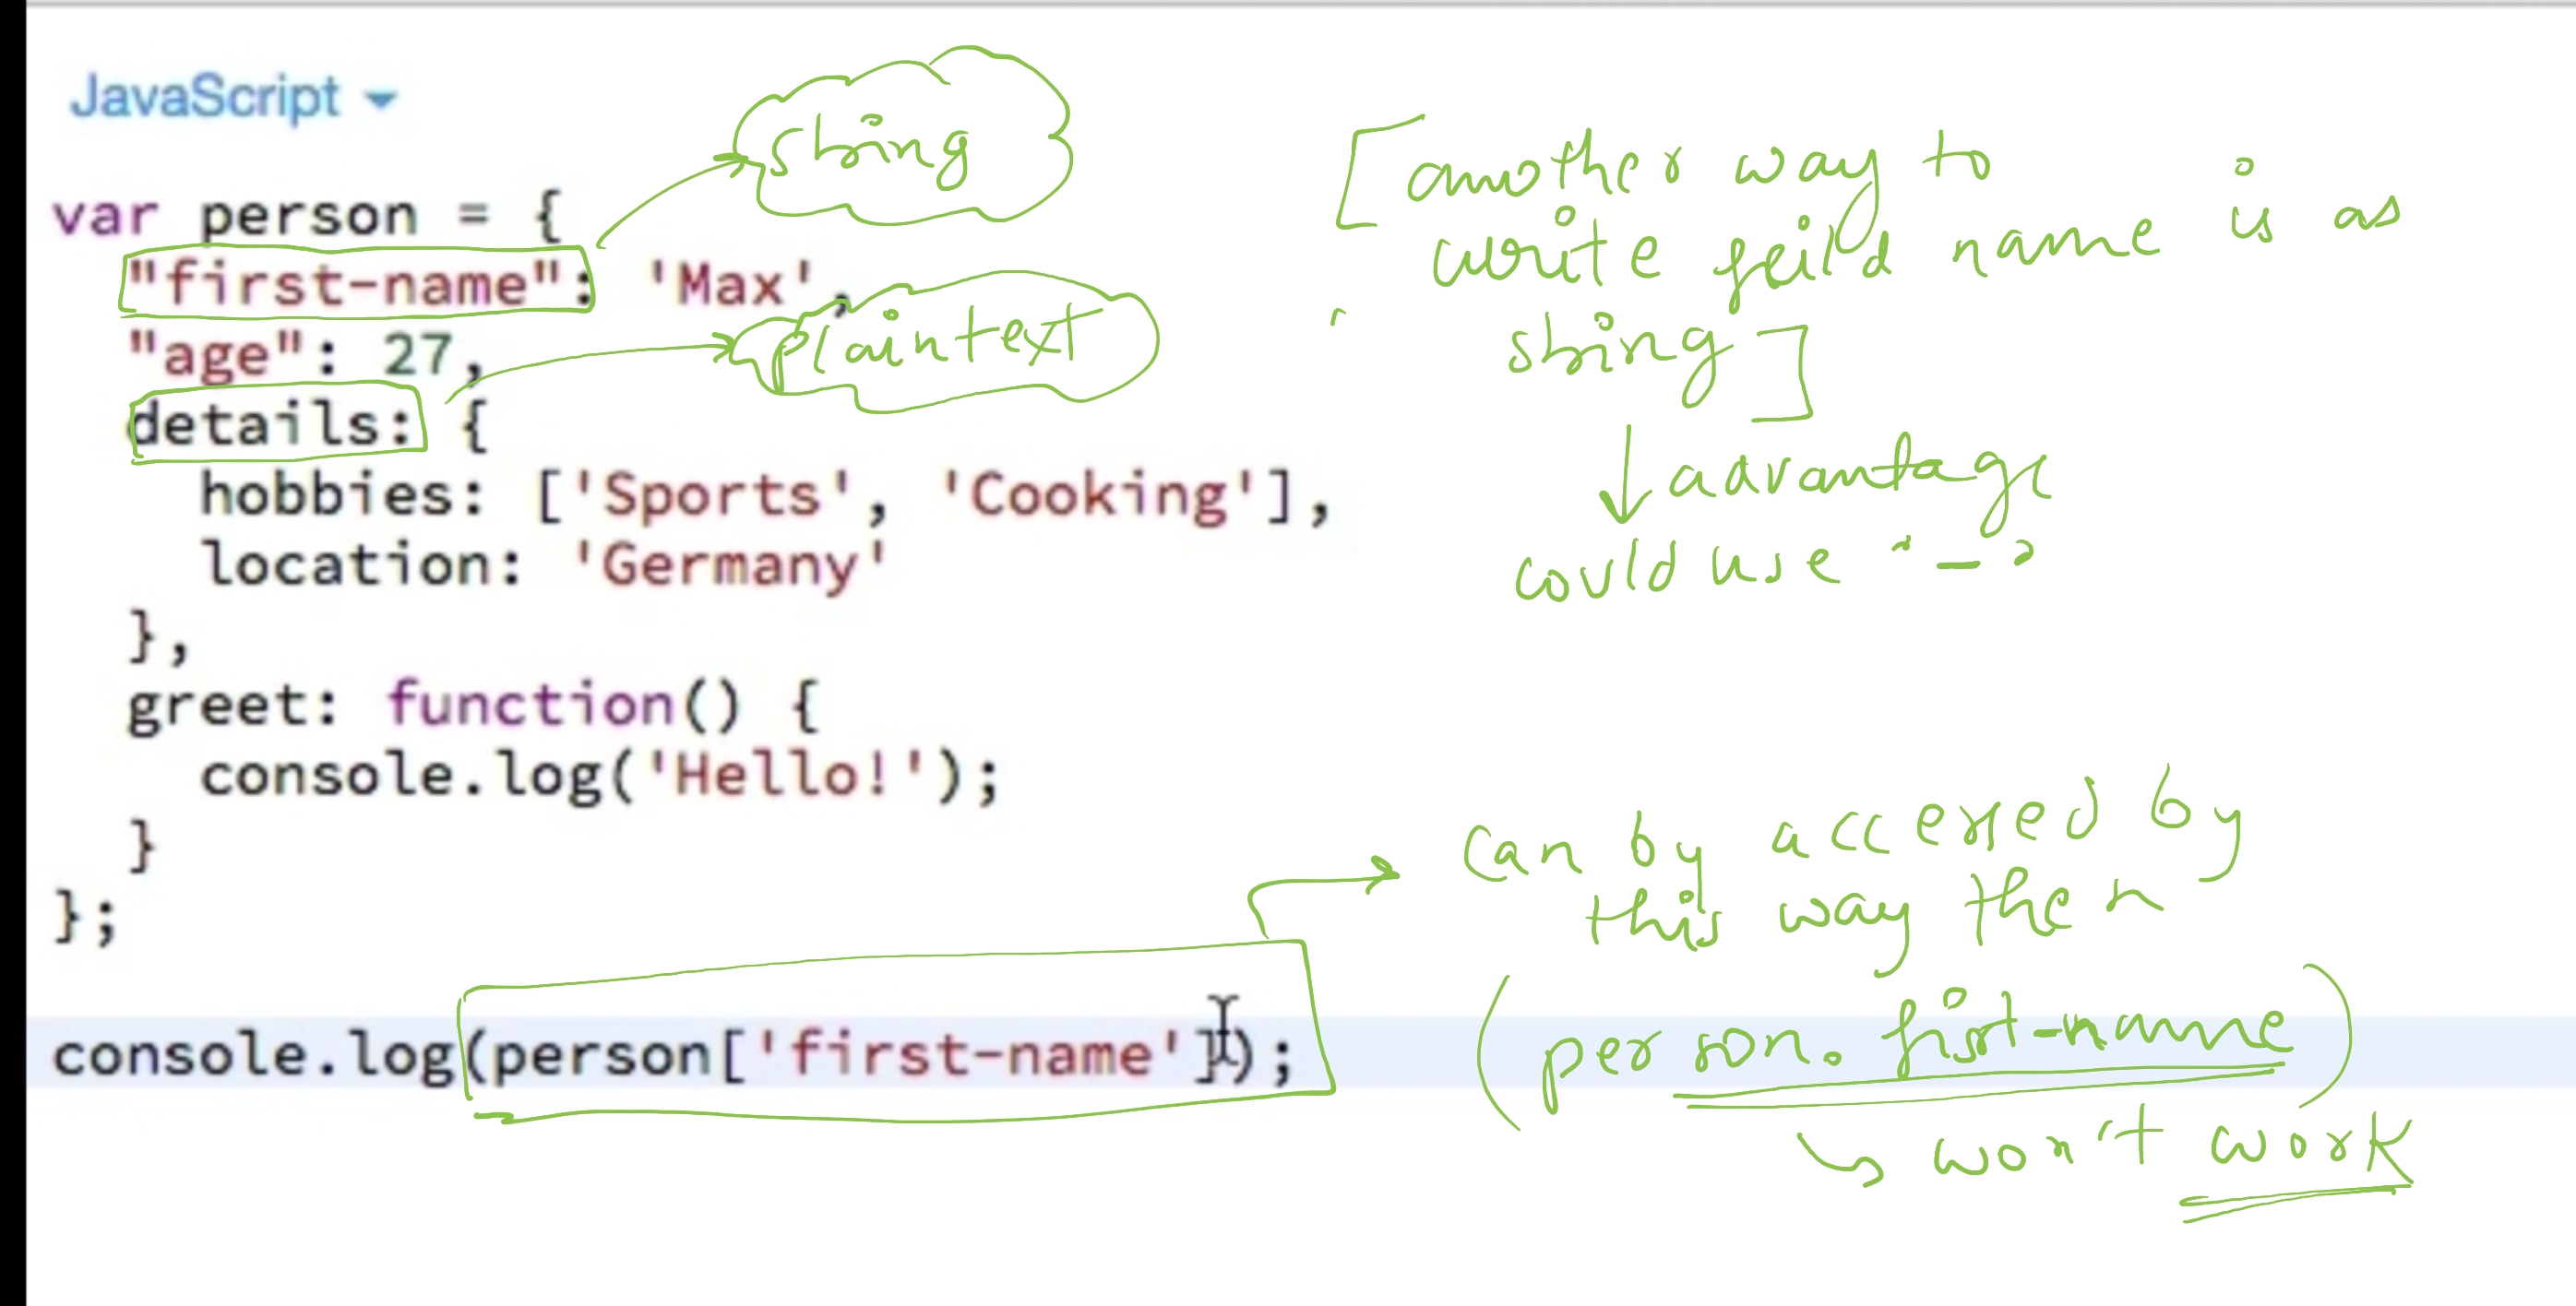 JavaScript
var person = {
"first-name": 'Max',
"age": 27,
details: {
hobbies: ['Sports', 'Cooking'],
location: 'Germany'
},
greet: function() {
console.log('Hello!');
}
};
console.log(person['first-name']);
string
plaintext
[another way to
write feild name is as
string]
↓ advantage
could use '-'
can by accessed by
this way then
(person.first-name)
won't work